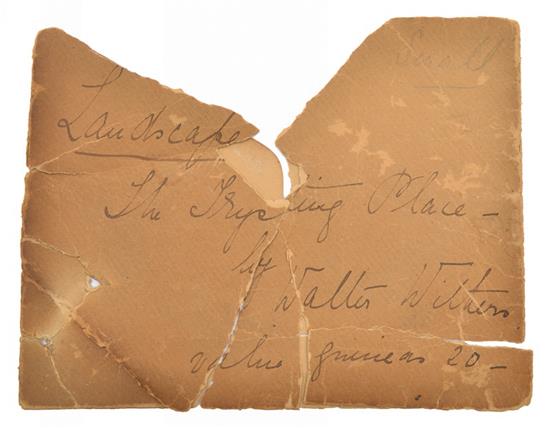 Small
Landscape
The Trysting Place –
by
Walter Withers.
value guineas 20 –